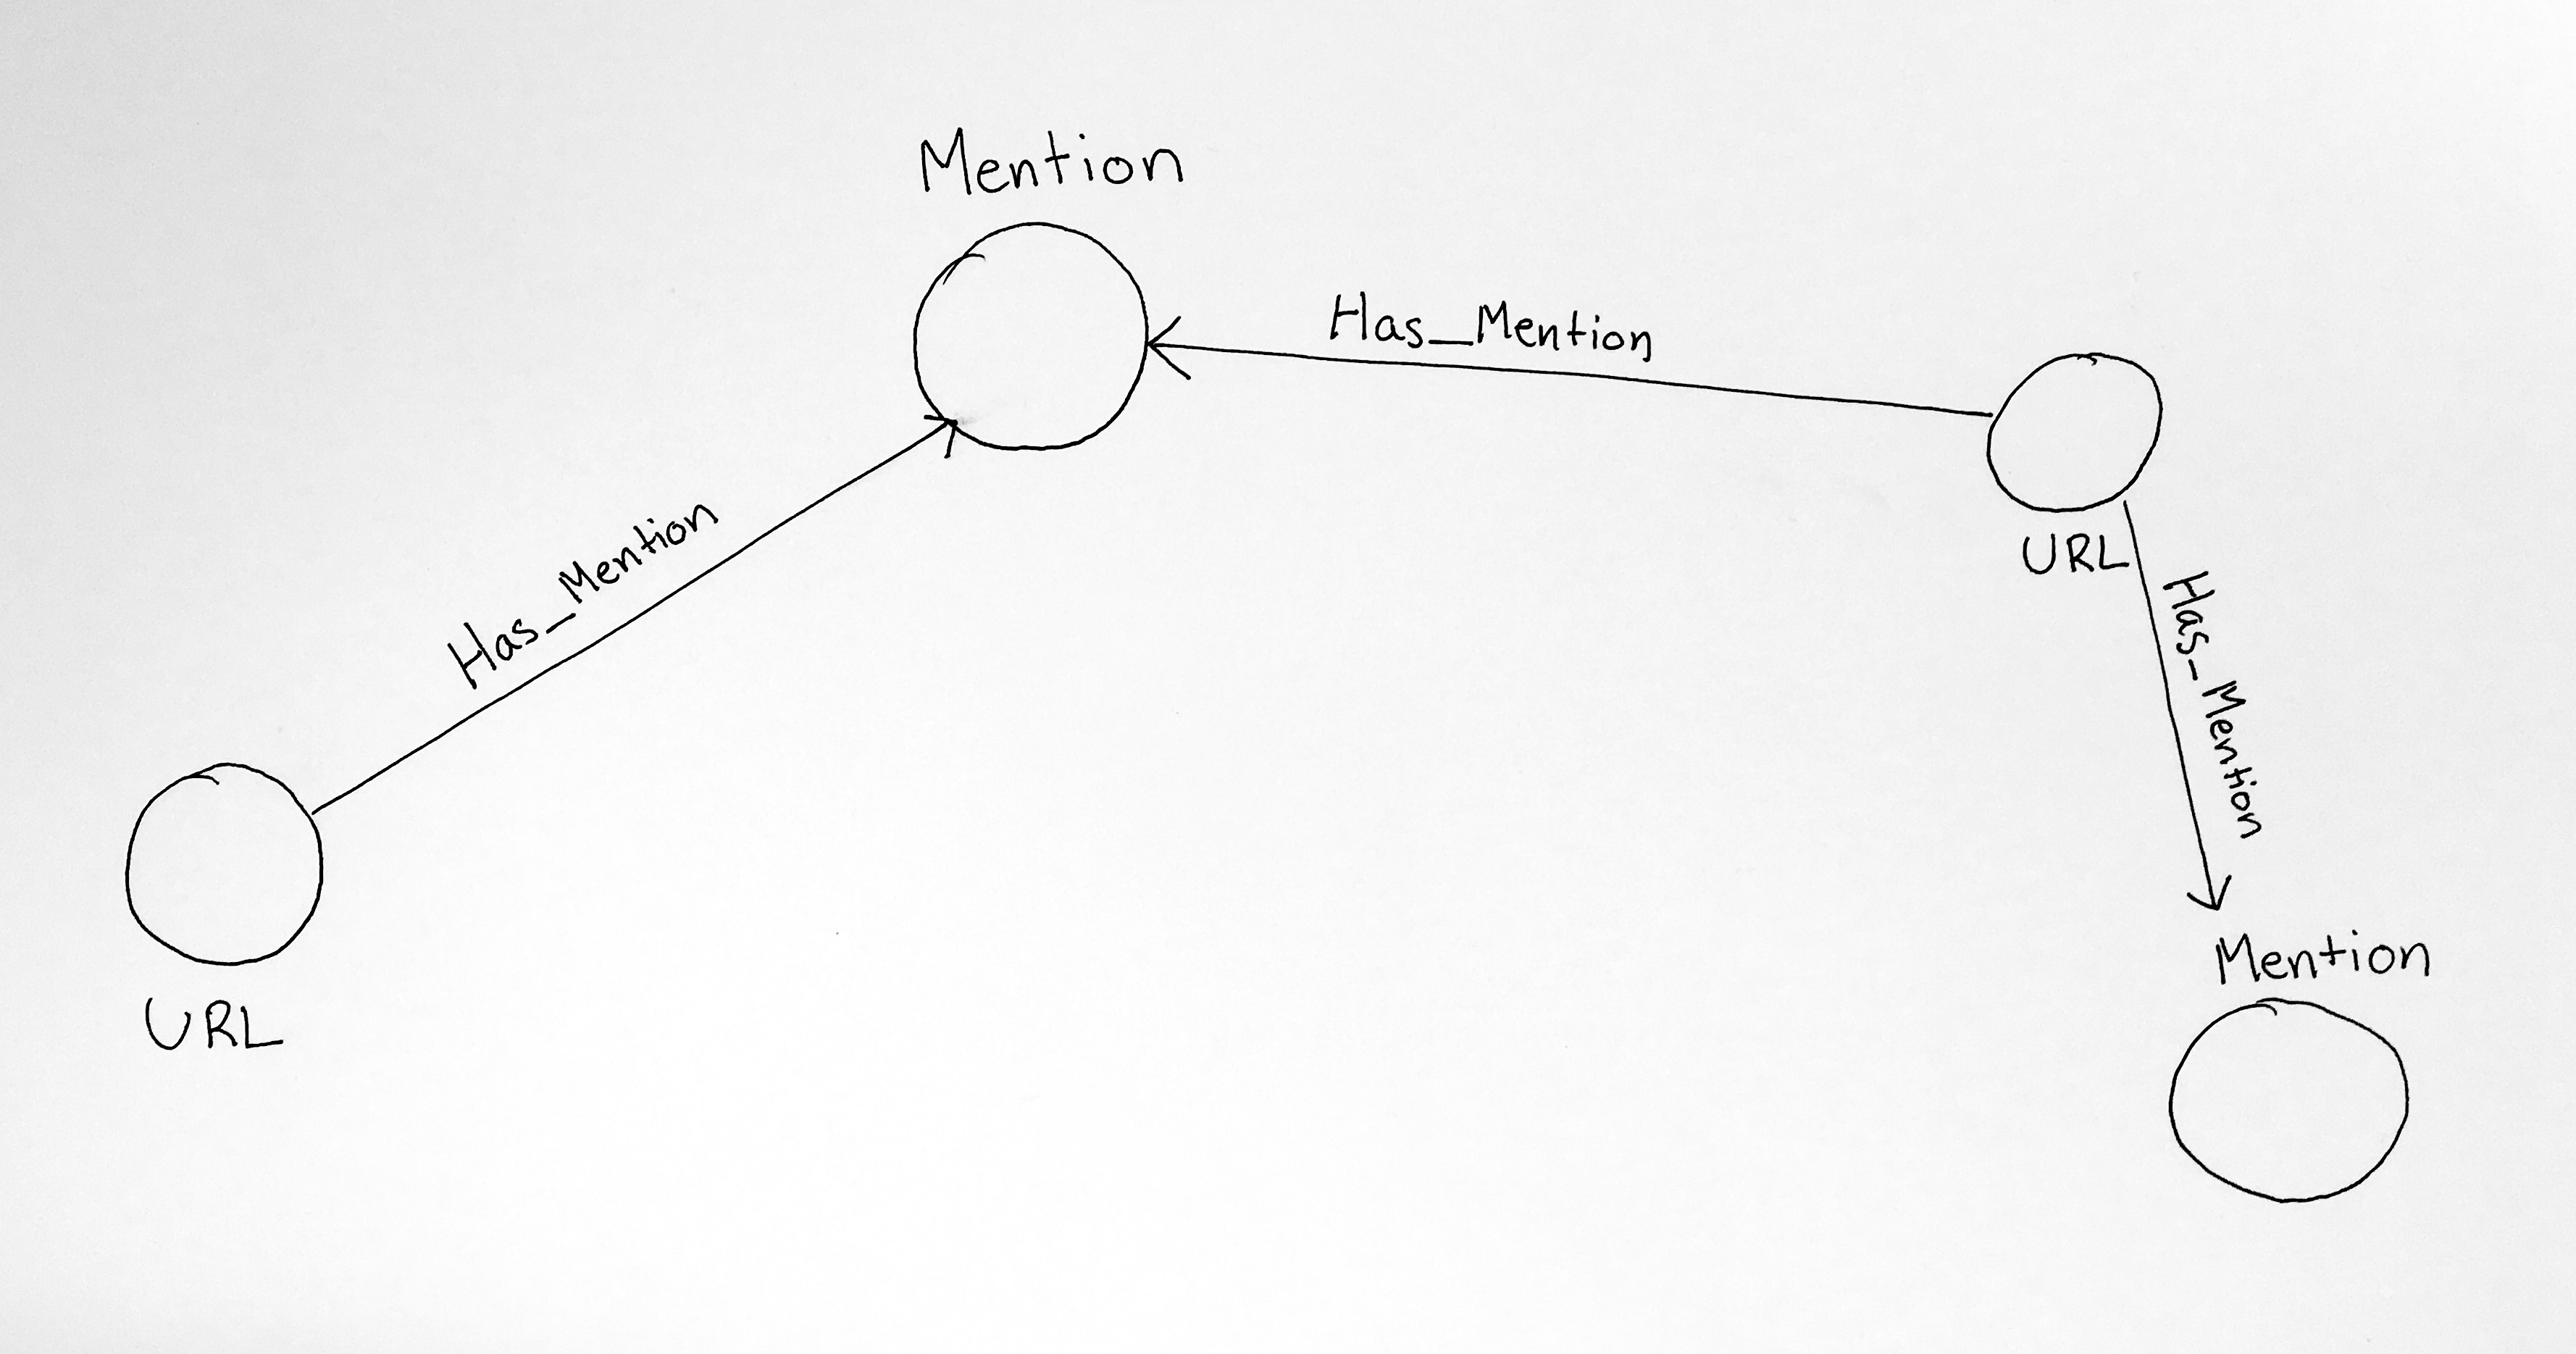 Mention
Has_Mention
Has_Mention
URL
Has_Mention
Mention
URL